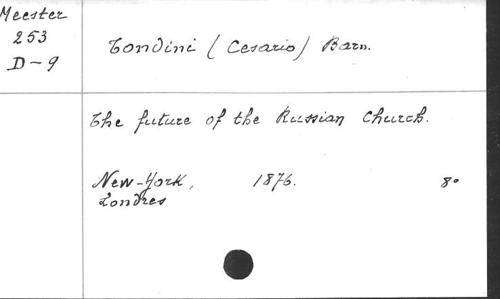 Meester
253
D-9
Tondini (Cesario) Barn.
The future of the Russian Church.
New-York, 1876. 8°
Londres